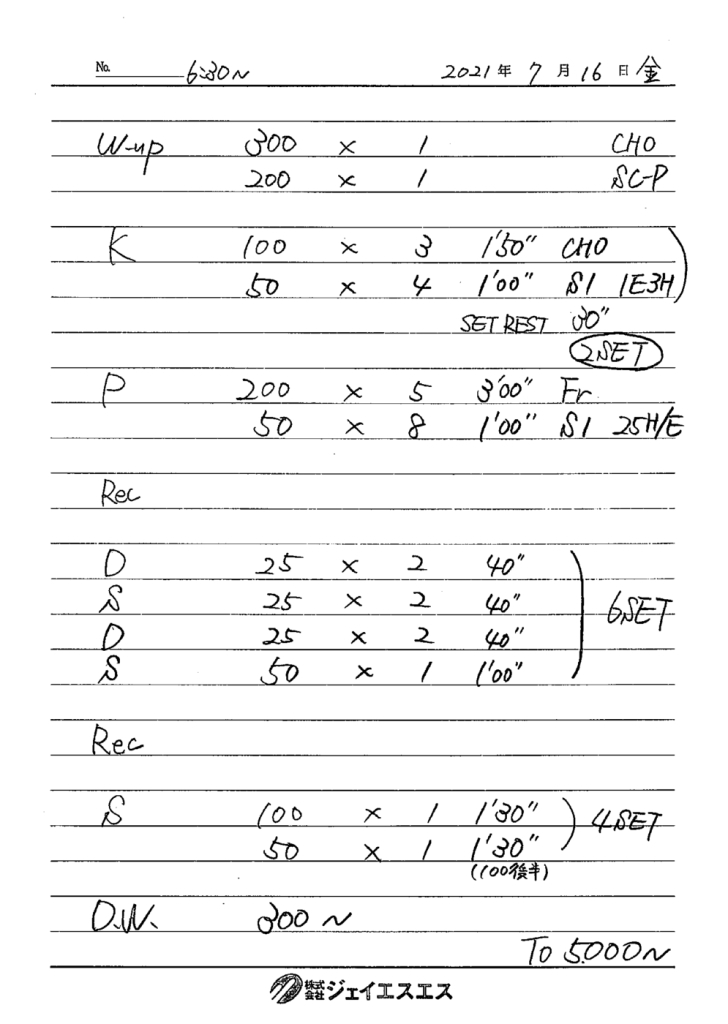 No. 6:30~ 2021年 7月 16日 金
W-up 300 × 1 CHO
200 × 1 SC-P
K 100 × 3 1'50" CHO
50 × 4 1'00" S1 1E3H
SET REST 30"
2SET
P 200 × 5 3'00" Fr
50 × 8 1'00" S1 25H/E
Rec
D 25 × 2 40"
S 25 × 2 40"
D 25 × 2 40"
S 50 × 1 1'00"
6SET
Rec
S 100 × 1 1'30"
50 × 1 1'30"
4SET
(100後半)
D.W. 300~
To 5000~
株式会社ジェイエスエス